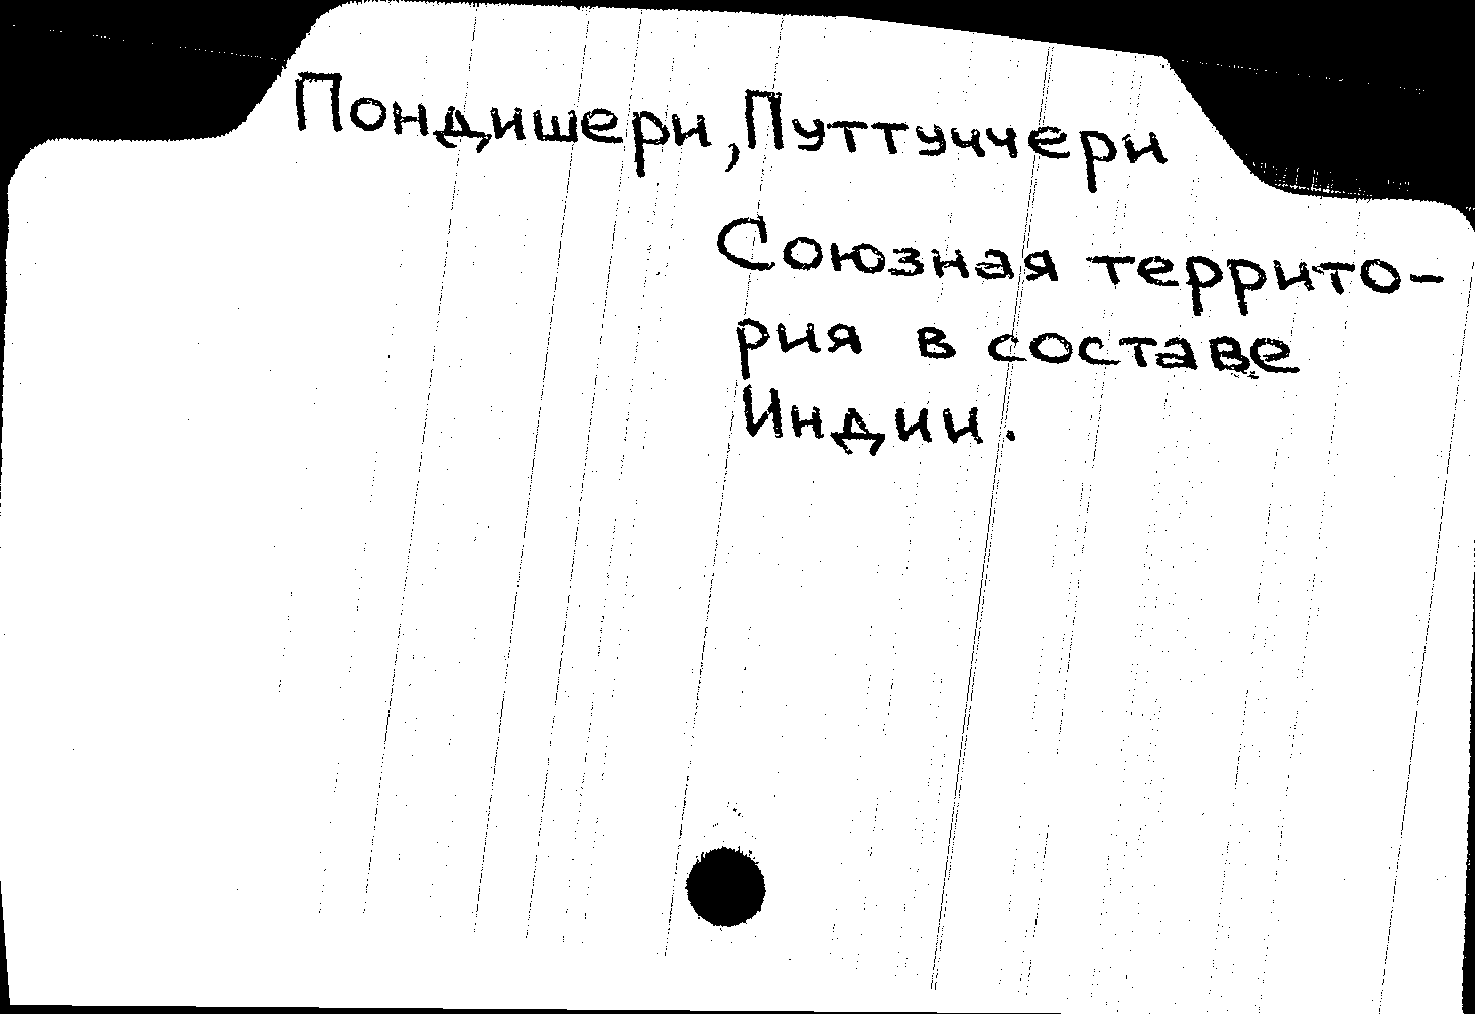 Пондишери, Путтуччери
Союзная террито-
рия в составе
Индии.